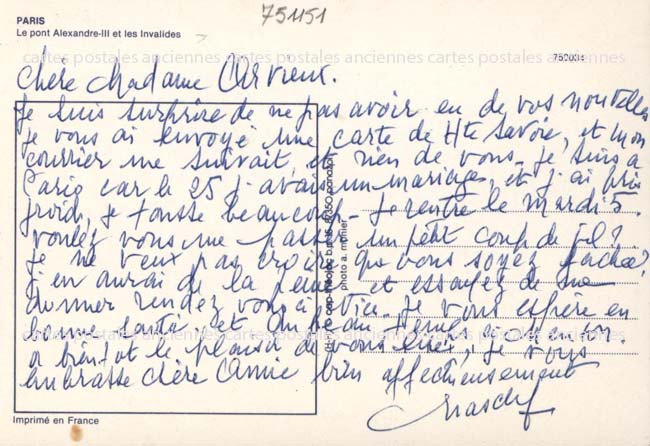 PARIS
Le pont Alexandre-III et les Invalides
751151
cartes postales anciennes cartes postales anciennes cartes postales anciennes
Chère Madame
Je suis surprise de ne pas avoir eu de vos nouvelles
Je vous ai envoyé une carte de Hte Savoie, et mon
courrier me suivait, et rien de vous. Je suis à
Paris car le 25 j'avais un mariage, et j'ai pris
froid, je tousse beaucoup. Je rentre le mardi 5.
voulez vous me passer un petit coup de fil?
Je ne veux pas croire que vous soyez fachée?
j'en aurai de la peine et essayez de me
donner rendez vous à . Je vous espère en
bonne santé, et du beau temps
cartes postales anciennes cartes postales anciennes cartes postales anciennes
a bientot le plaisir de vous lire, je vous
embrasse chère Amie bien affectueusement
photo a. monier
Imprimé en France